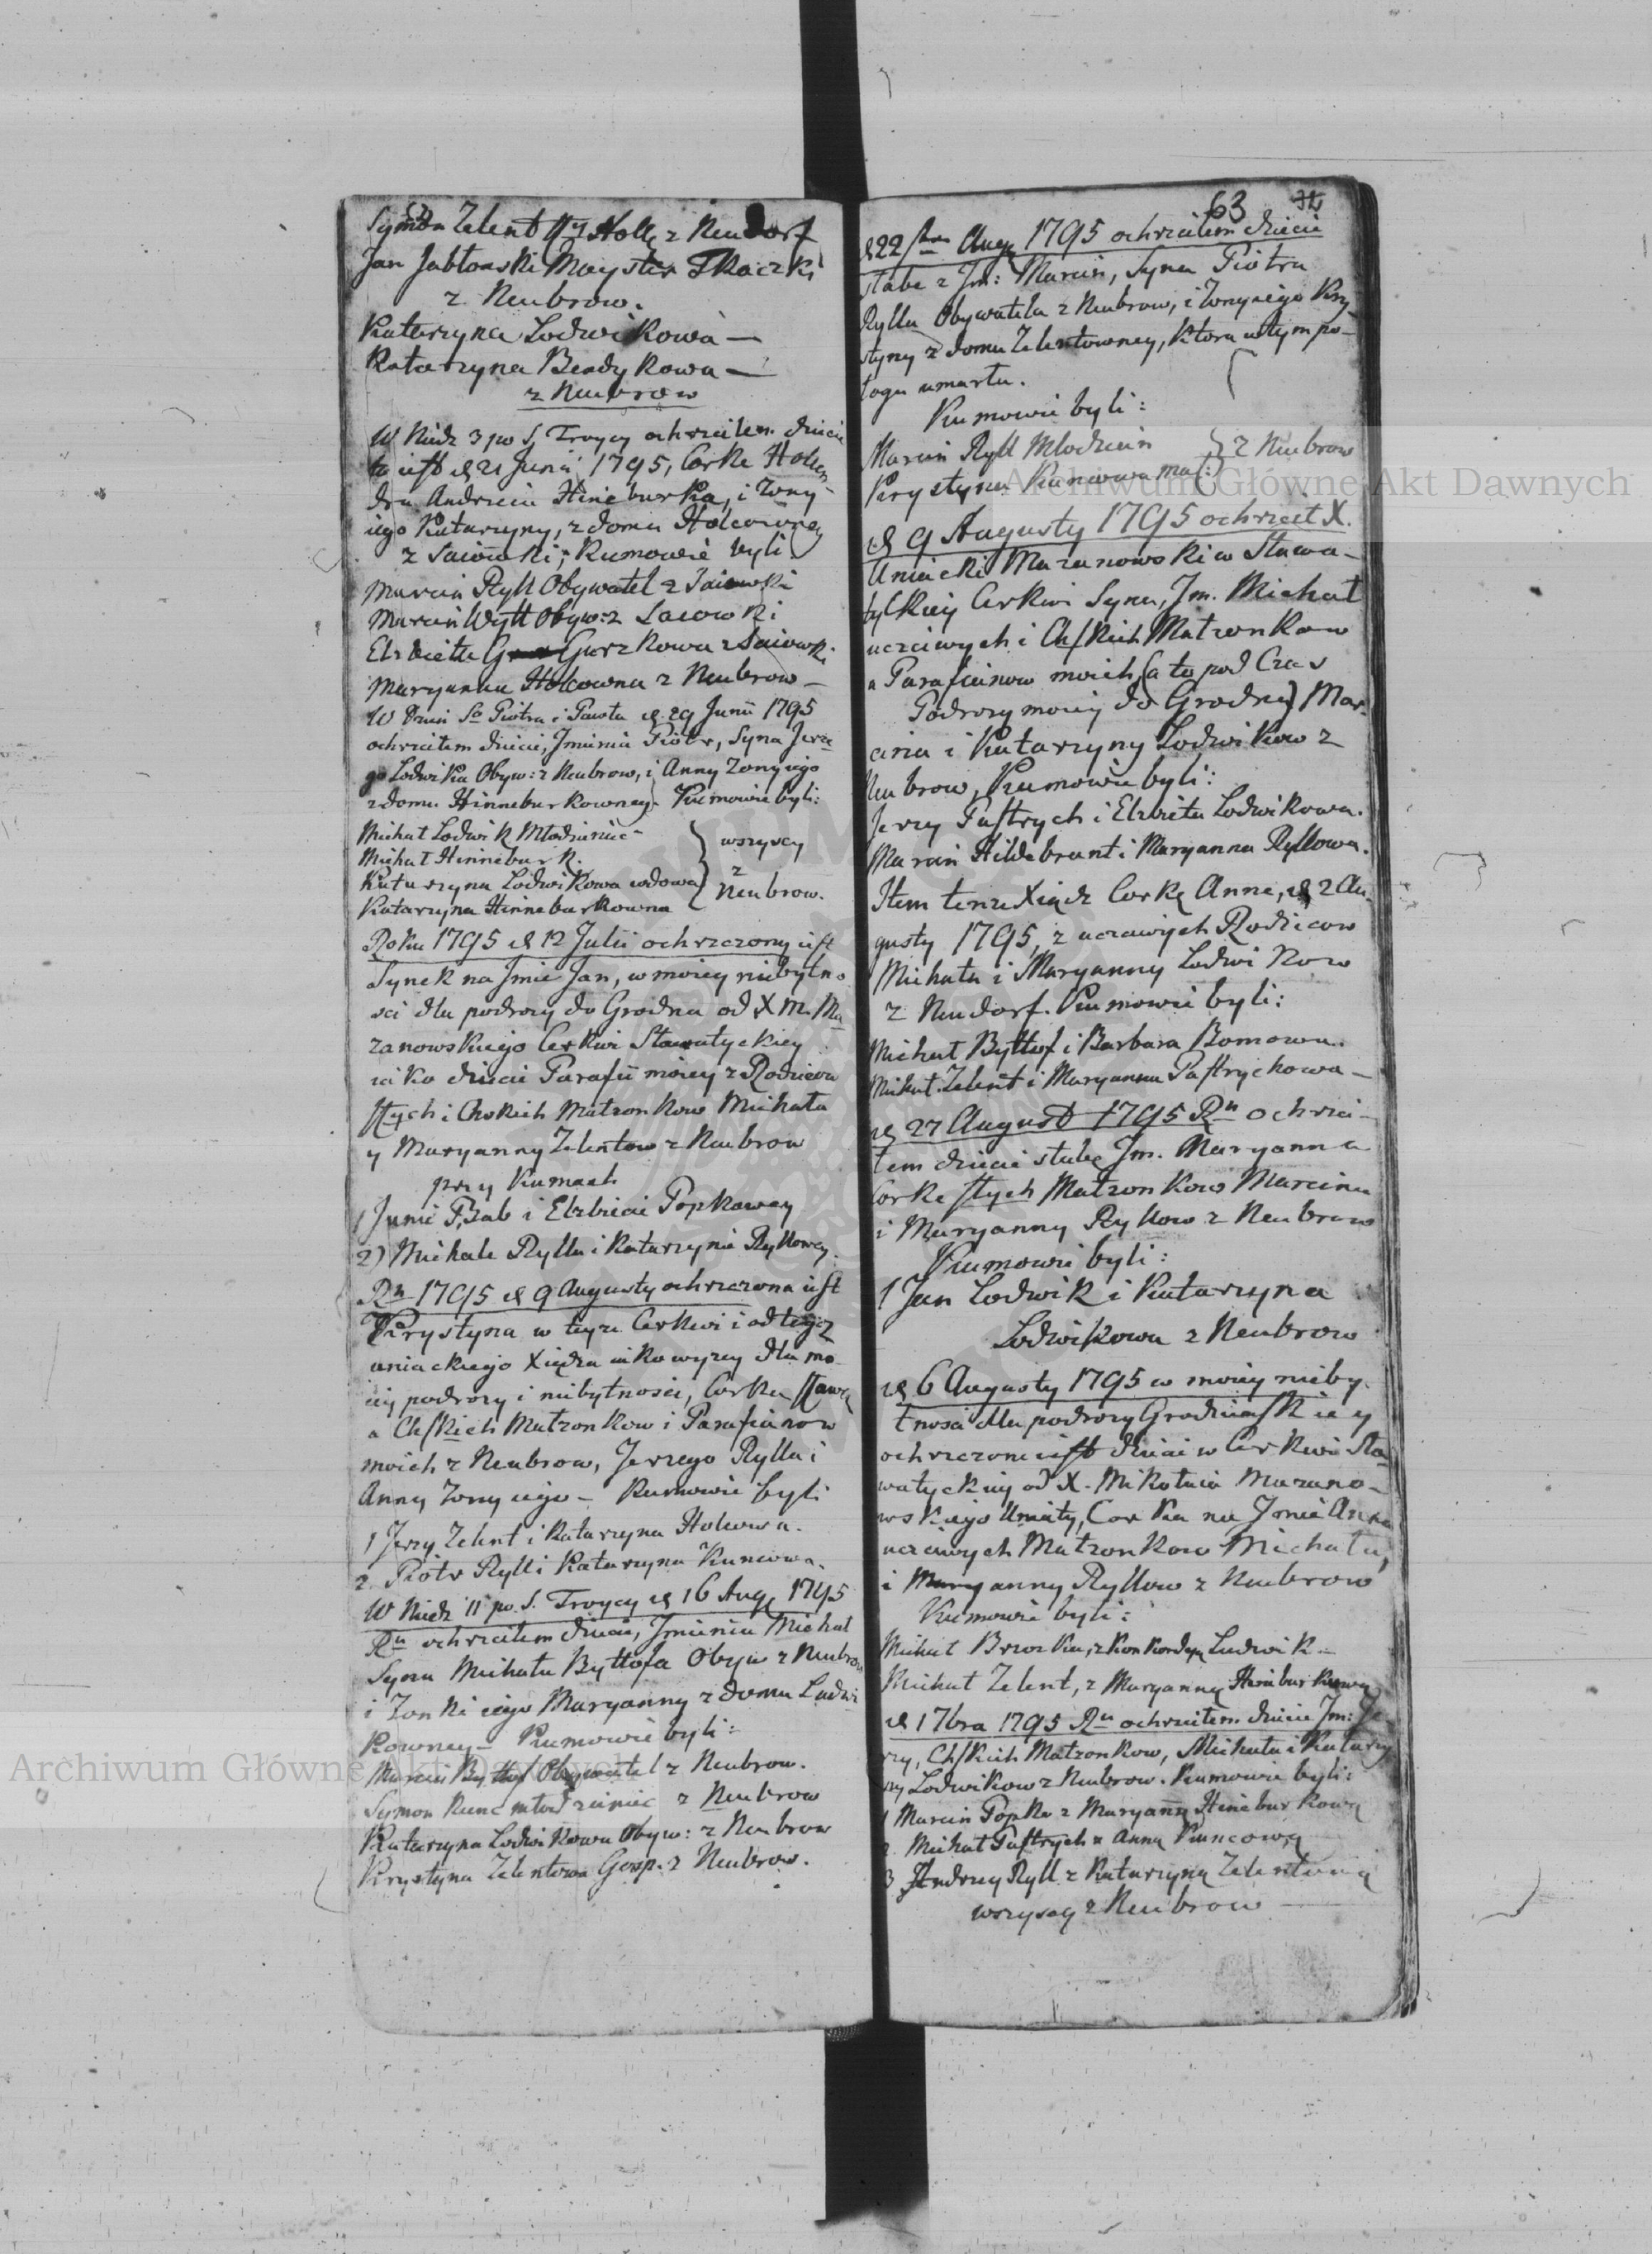 Symon Zelent z Neudorf
Jan Jabłonski Mayster Tkaczki
z Neubrow.
Katarzyna Lodwikowa —
Katarzyna Bendykowa —
z Neubrow
W Niedz 3 po S. Troycy ochrzciłem dziecie
to iest 21 Junii 1795, Corke Holen-
dra Andrzeia Hineburka, i Zony
iego Katarzyny, z domu Holcowney
z Saiowki; Kumowie byli
Marcin Ryll Obywatel z Saiowki
Marcin Wytt Obyw: z Saiowki
Elzbieta Gurzkowa z Saiowki
Maryanna Holcowna z Neubrow —
W Dzien Sgo Piotra i Pawła 29 Junii 1795
ochrzciłem dziecie, Jmieniu Piotr, Syna Jerze
go Lodwika Obyw: z Neubrow, i Anny Zony iego
z domu Hinneburkowney. Kumowie byli:
Michał Lodwik Młodzieniec
Michał Hinneburk.
Katarzyna Lodwikowa wdowa
Katarzyna Hinneburkowna
wszyscy
z
Neubrow.
Roku 1795 12 Julii ochrzczony iest
Synek na Jmie Jan, w moiey niebytno
sci dla podrozy do Grodna od X M. Ma
zanowskiego Cerkwi Sławatyckiey
iako dziecie Parafii moiey z Rodzicow
i Chskich Matzonkow Michała
y Maryanny Zelentow z Neubrow
przy Kumach
1 Junie Bab i Elzbicie Popkowey
2) Michale Rylla i Katarzynie Ryllowey.
Rn 1795 9 Augusty ochrzczona iest
Krystyna w teyze Cerkwi i od tegoz
uniackiego Xiędza iako wyzey dla mo
iey podrozy i niebytnosci, Corka
a Chskich Matzonkow i Parafianow
moich z Neubrow, Jerzego Rylla i
Anny Zony iego — Kumowie byli
1 Jerzy Zelent i Katarzyna Holcowa.
2 Piotr Ryll i Katarzyna Kuncowa.
W Niedz 11 po. S. Troycy 16 Aug 1795
Rn ochrzciłem dziecie, Jmieniu Michał
Syna Michała Byttofa Obyw z Neubrow
i Zonki iego Maryanny z domu Ludwi
kowney — Kumowie byli:
Marcin Byttof Obywatel z Neubrow.
Symon Kunc młodzieniec z Neubrow
Katarzyna Lodwikowa Obyw: z Neubrow
Krystyna Zelentowa Gosp. z Neubrow.
63
22 Aug 1795 ochrzciłem dziecie
słabe z Jm: Marcin, Syna Piotra
Rylla Obywatela z Neubrow, i Zony iego Kry
styny z domu Zelentowney, Ktora w tym po-
łogu umarła.
Kumowie byli:
Marcin Ryll Młodzien
Krystyna Kuncowa
z Neubrow
9 Augusty 1795 ochrzcił X.
Uniacki Mazanowski w Sława-
tyckiey Cerkwi Syna, Jm. Michał
uczciwych i Chskich Matzonkow
a Parafianow moich (a to pod Czas
Podrozy moiey do Grodna) Mar-
cina i Katarzyny Lodwikow z
Neubrow, Kumowie byli:
Jerzy Pastrych i Elzbieta Lodwikowa.
Marcin Hildebrant i Maryanna Ryllowa.
Item tenze Xiądz Corkę Anne, 2 Au-
gusty 1795, z uczciwych Rodzicow
Michała i Maryanny Lodwikow
z Neudorf. Kumowie byli:
Michał Byttof i Barbara Bomowa.
Michał Zelent i Maryanna Pastrychowa —
27 August 1795 Rn ochrzci-
łem dziecie słabe Jm. Maryanna
Corke Matzonkow Marcina
i Maryanny Ryllow z Neubrow
Kumowie byli:
1 Jan Lodwik i Katarzyna
Lodwikowa z Neubrow
6 Augusty 1795 w moiey nieby-
tnosci dla podrozy Grodzienskiey
ochrzczone iest dziecie w Cerkwi Sła-
watyckiey od X. Mikołaia Mazano-
wskiego Unity, Corka na Jmie Anna
uczciwych Matzonkow Michała,
i Maryanny Ryllow z Neubrow
Kumowie byli:
Michał Brzozka, z Kunkordyą Ludwik —
Michał Zelent, z Maryanną Hineburkowną
1 7bra 1795 Rn ochrzciłem dziecie Jm: Je
rzy, Chskich Matzonkow, Michała i Katarzy
ny Lodwikow z Neubrow. Kumowie byli:
1 Marcin Popko z Maryanną Hineburkową
2. Michał Pastrych z Anną Kuncową
3 Andrzey Ryll z Katarzyną Zelentową
wszyscy z Neubrow —
Archiwum Główne Akt Dawnych
Archiwum Główne Akt Dawnych